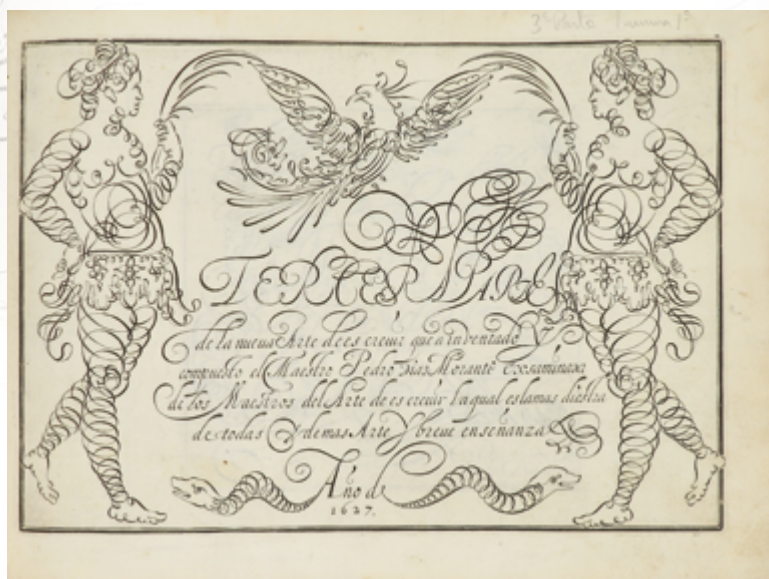 3ª Parte lamina 1ª
TERCERA PARTE
de la nueua Arte de es creuir que a inbentado Y
compuesto el Maestro Pedro Dias Morante Exsaminaxa
de los Maestros del Arte de es creuir laqual es la mas diestra
de todas Y demas Arte Y breue enseñanza
Año de
1627.